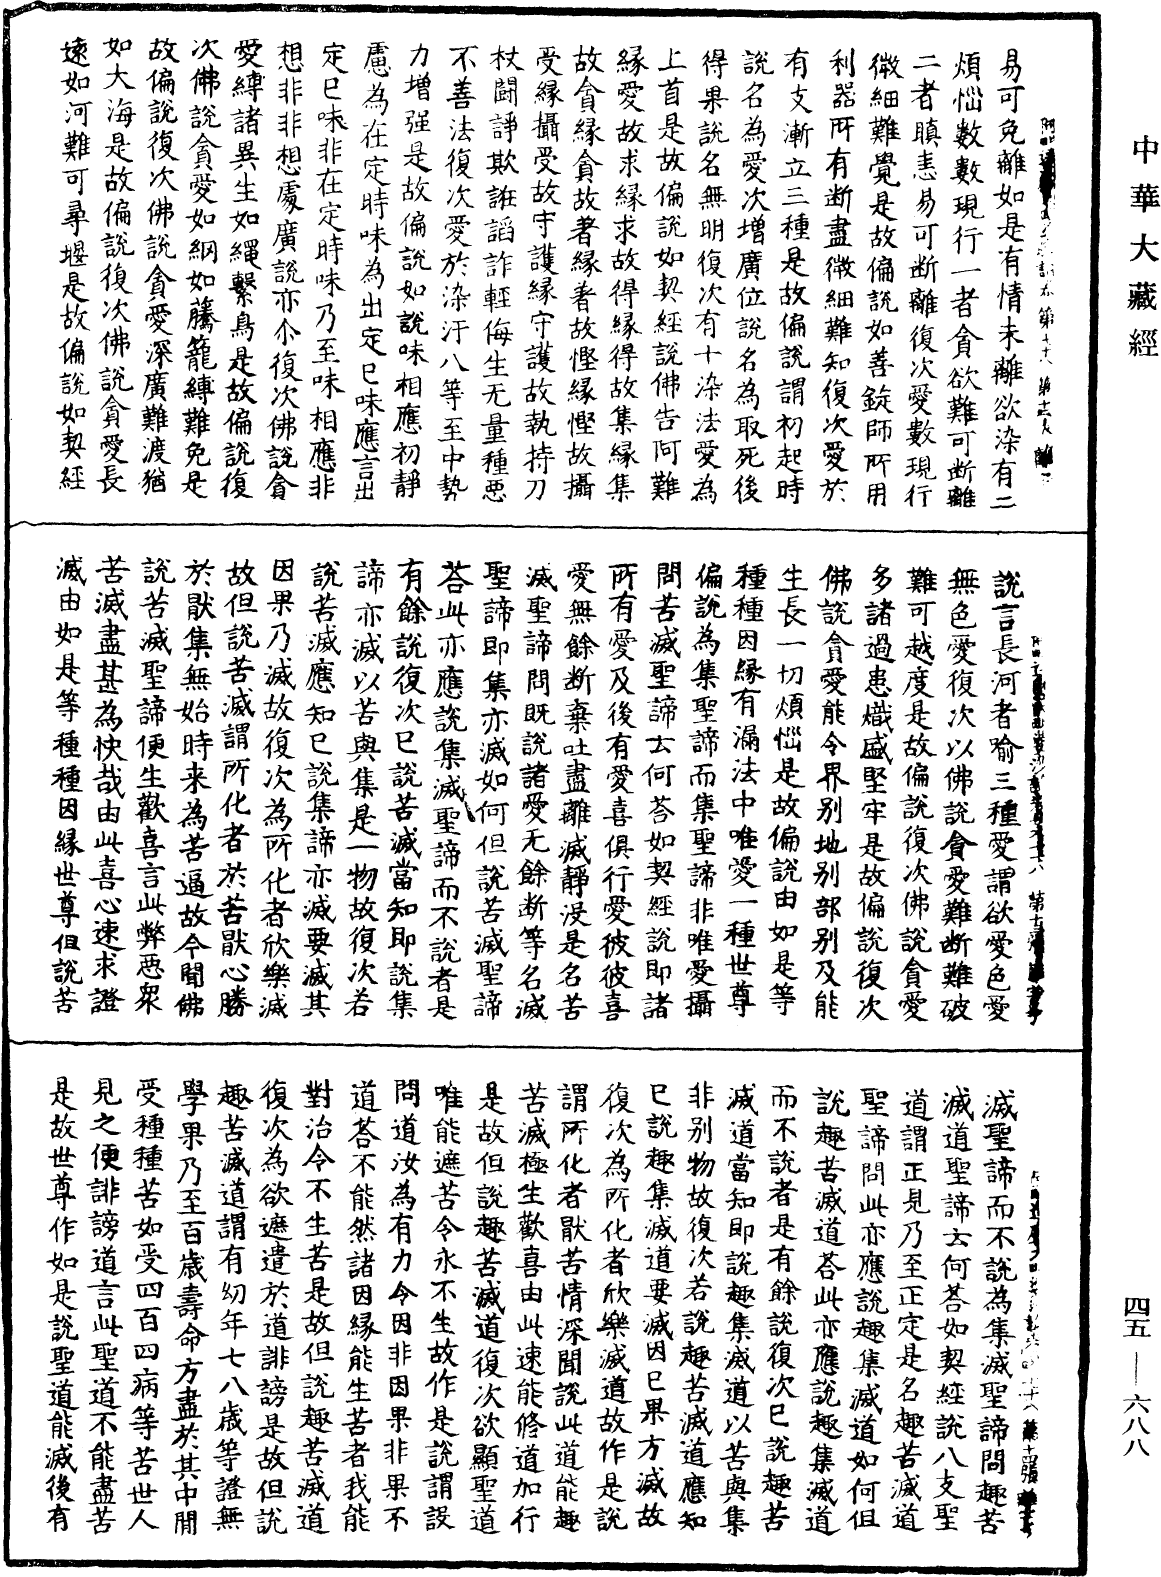 中華大藏經
易可免離如是有情未離欲染有二
煩惱數數現行一者貪欲難可断離
二者瞋恚易可断離復次愛數現行
微細難覺是故偏說如善錠師所用
利器所有断盡微細難知復次愛於
有支漸立三種是故偏說謂初起時
說名為愛次增廣位說名為取死後
得果說名無明復次有十染法愛為
上首是故偏說如契經說佛告阿難
緣愛故求緣求故得緣得故集緣集
故貪緣貪故著緣著故慳緣慳故攝
受緣攝受故守護緣守護故執持刀
杖鬪諍欺誑諂詐輕侮生无量種惡
不善法復次愛於染汙八等至中勢
力增强是故偏說如說味相應初靜
慮為在定時味為出定已味應言出
定已味非在定時味乃至味相應非
想非非想處廣說亦尒復次佛說貪
愛縛諸異生如繩繫鳥是故偏說復
次佛說貪愛如網如藤籠縛難免是
故偏說復次佛說貪愛深廣難渡猶
如大海是故偏說復次佛說貪愛長
遠如河難可尋堰是故偏說如契經
說言長河者喻三種愛謂欲愛色愛
無色愛復次以佛說貪愛難断難破
難可越度是故偏說復次佛說貪愛
多諸過患熾盛堅牢是故偏說復次
佛說貪愛能令界別地別部別及能
生長一切煩惱是故偏說由如是等
種種因緣有漏法中唯愛一種世尊
偏說為集聖諦而集聖諦非唯愛攝
問苦滅聖諦云何荅如契經說即諸
所有愛及後有愛喜俱行愛彼彼喜
愛無餘断棄吐盡離滅靜没是名苦
滅聖諦問既說諸愛无餘断等名滅
聖諦即集亦滅如何但說苦滅聖諦
荅此亦應說集滅聖諦而不說者是
有餘說復次已說苦滅當知即說集
諦亦滅以苦與集是一物故復次若
說苦滅應知已說集諦亦滅要滅其
因果乃滅故復次為所化者欣樂滅
故但說苦滅謂所化者於苦猒心勝
於猒集無始時来為苦逼故今聞佛
說苦滅聖諦便生歡喜言此弊惡衆
苦滅盡甚為快哉由此喜心速求證
滅由如是等種種因緣世尊但說苦
滅聖諦而不說為集滅聖諦問趣苦
滅道聖諦云何荅如契經說八支聖
道謂正見乃至正定是名趣苦滅道
聖諦問此亦應說趣集滅道如何但
說趣苦滅道荅此亦應說趣集滅道
而不說者是有餘說復次已說趣苦
滅道當知即說趣集滅道以苦與集
非別物故復次若說趣苦滅道應知
已說趣集滅道要滅因已果方滅故
復次為所化者欣樂滅道故作是說
謂所化者猒苦情深聞說此道能趣
苦滅極生歡喜由此速能修道加行
是故但說趣苦滅道復次欲顯聖道
唯能遮苦令永不生故作是說謂設
問道汝為有力令因非因果非果不
道荅不能然諸因緣能生苦者我能
對治令不生苦是故但說趣苦滅道
復次為欲遮遣於道誹謗是故但說
趣苦滅道謂有幼年七八歲等證無
學果乃至百歲壽命方盡於其中閒
受種種苦如受四百四病等苦世人
見之便誹謗道言此聖道不能盡苦
是故世尊作如是說聖道能滅後有
四五—六八八